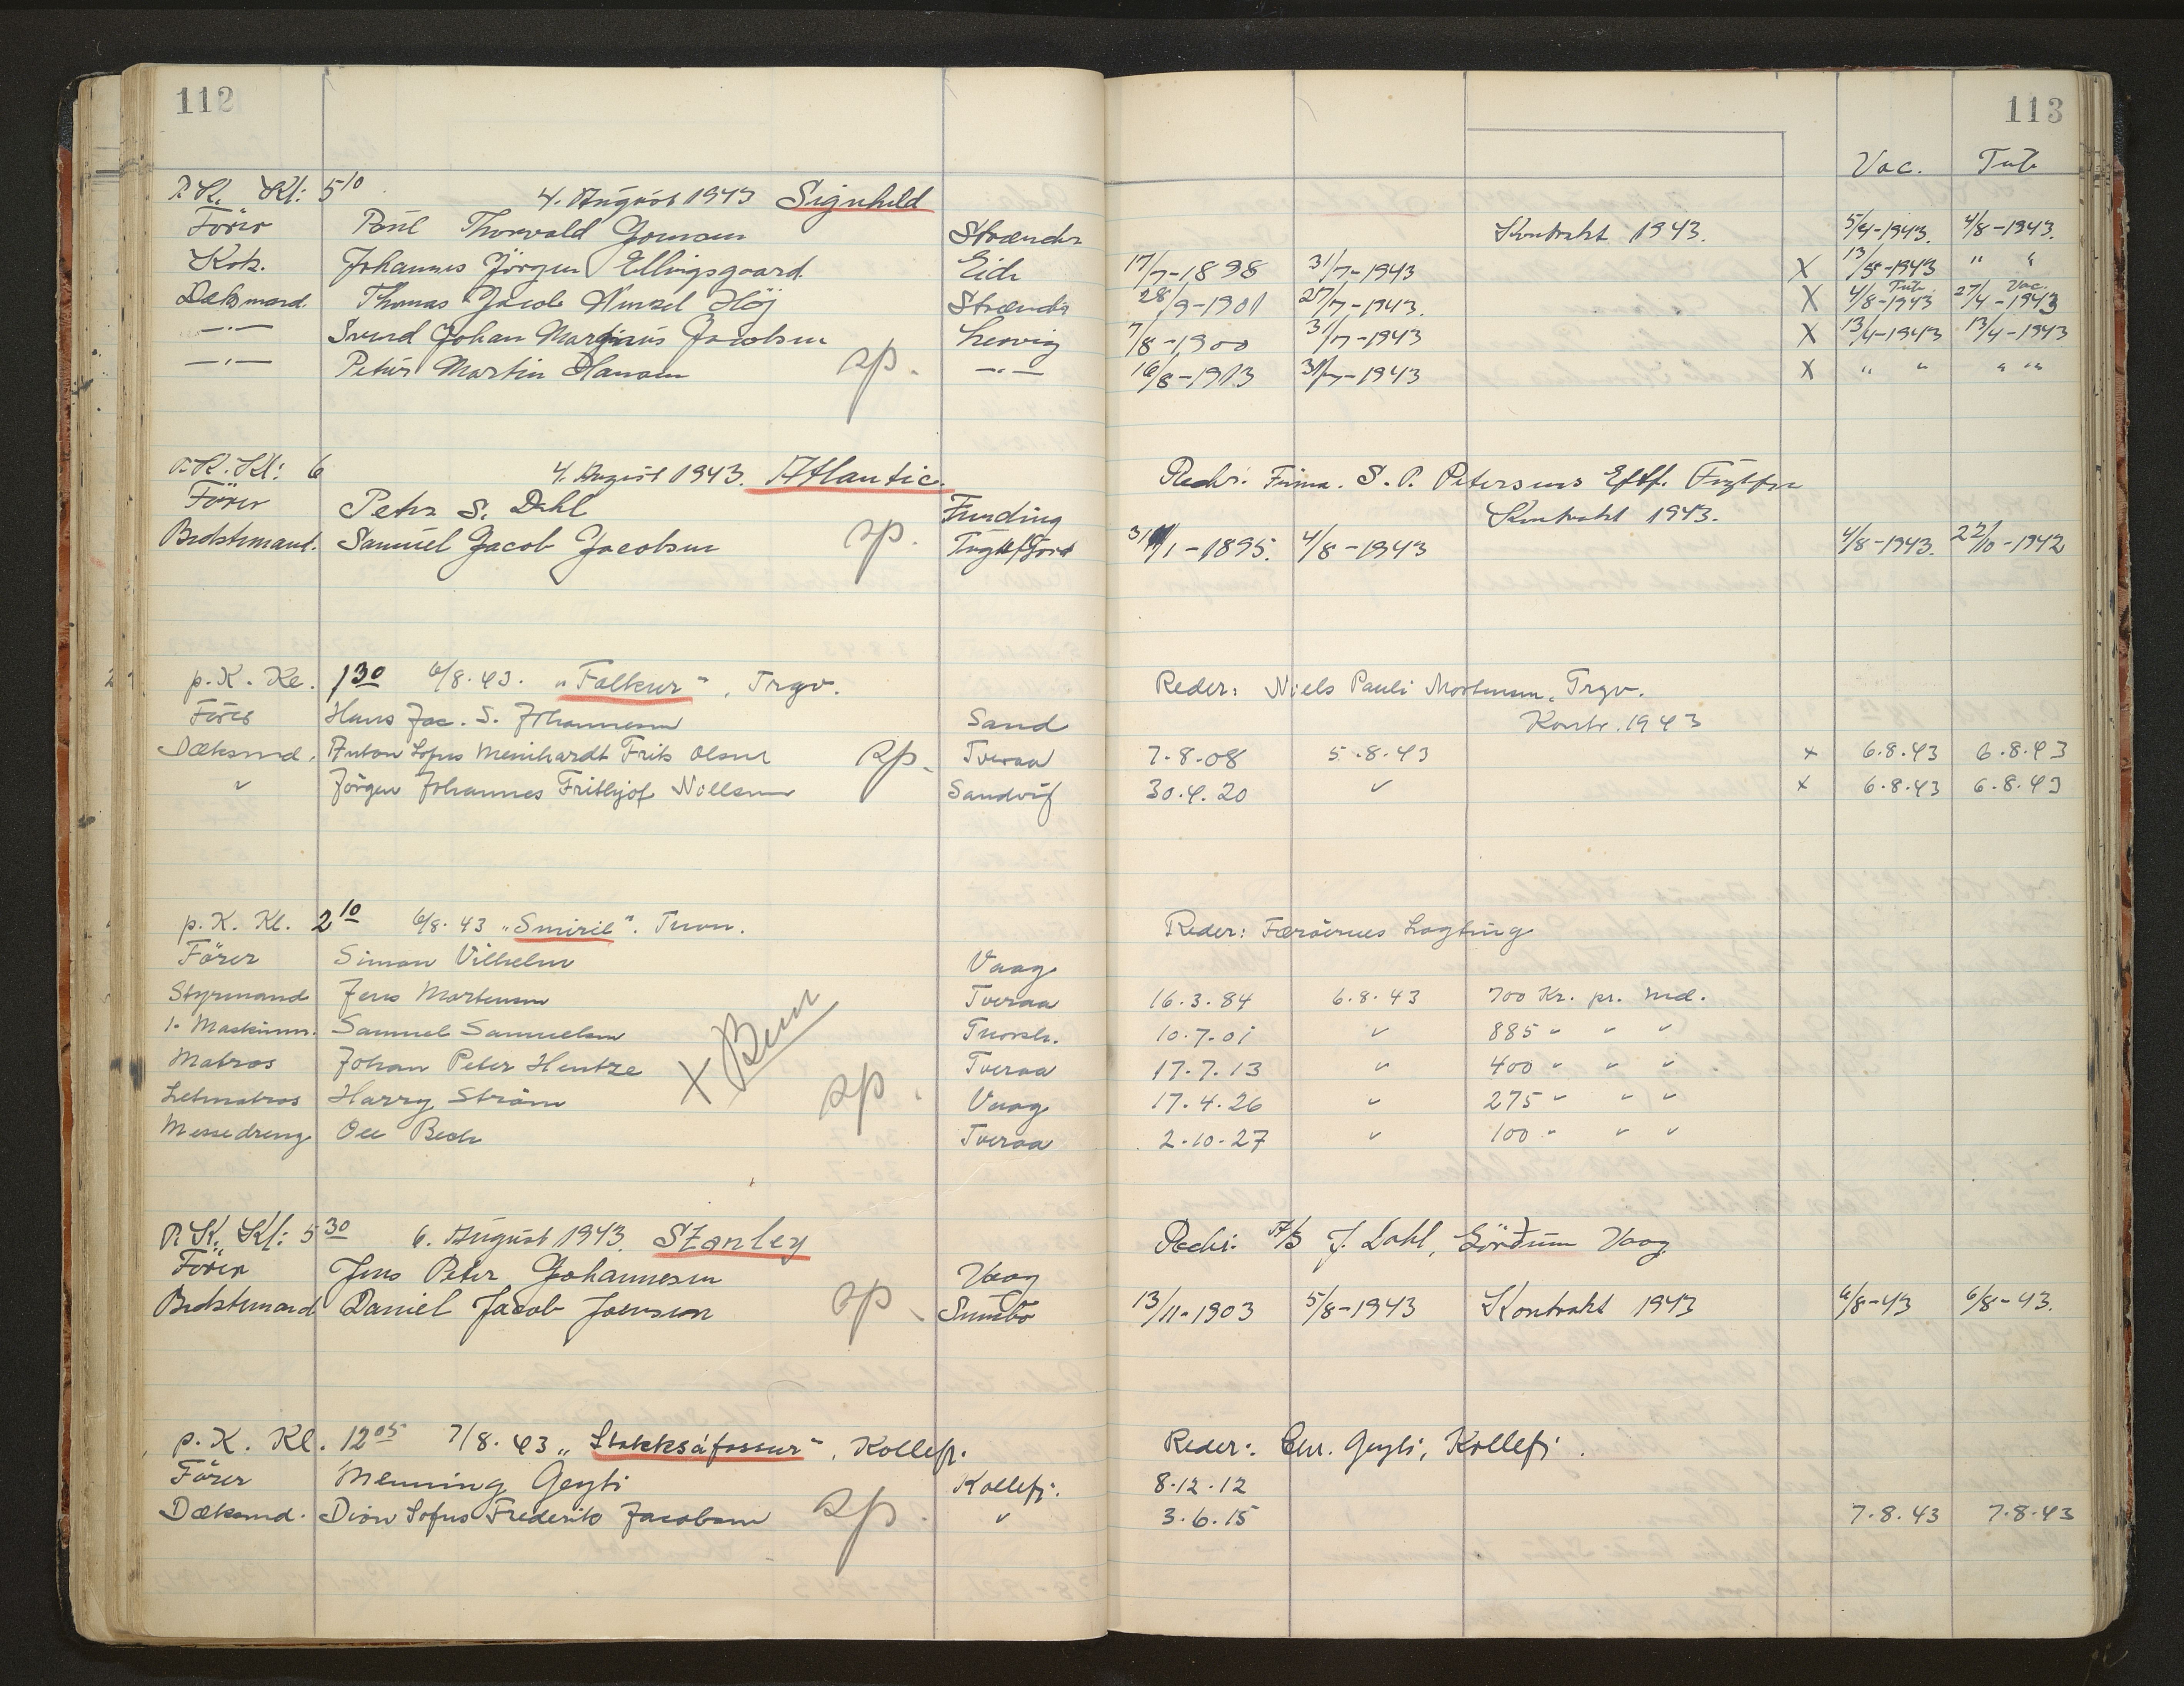 112
113
Vac. Tub
P.K. Kl: 5 10 4. August 1943 Signhild
Förer Poul Thorvald Joensen Strænder Kontrakt 1943. 5/4-1943. 4/8-1943.
Kok. Johannes Jörgen Ellingsgaard Eide 17/7-1898 31/7-1943 X 13/5-1943 " "
Dæksmand Thomas Jacob Høj Strænder 28/9-1901 27/7-1943. X 4/8-1943 Tub. 27/4-1943 Vac.
—·— Svend Johan Marjinus Jacobsen Lervig 7/8-1900 31/7-1943 X 13/4-1943 13/4-1943
—·— Petur Martin Hansen sp. —·— 16/8-1913 31/7-1943 X " " " "
P.K. Kl: 6 4. August 1943. Atlantic. Reder: Firma. S. P. Petersens Eftf. Fuglfjr
Förer Peter S. Dahl Funding Kontrakt 1943.
Bedstemand. Samuel Jacob Jacobsen sp. Fuglefjord 31/1-1895. 4/8-1943 4/8-1943. 22/10-1942
p.K. Kl. 1 30 6/8.43. "Falkur", Trgv. Reder: Niels Pauli Mortensen, Trgv.
Förer Hans Jac. S. Johannesen Sand Kontr. 1943
Dæksmd. Anton Sofus Meinhardt Frits Olsen sp. Tveraa 7.8.08 5.8.43 x 6.8.43 6.8.43
" Jörgen Johannes Frithjof Nollsøe Sandvig 30.4.20 " x 6.8.43 6.8.43
p.K. Kl. 2 10 6/8.43 "Smiril". Tvon. Reder: Færöernes Lagting
Förer Simon Vilhelm Vaag
Styrmand Jens Mortensen Tveraa 16.3.84 6.8.43 700 Kr. pr. Md.
1. Maskinm. Samuel Samuelsen Thorsh. 10.7.01 " 885 " " "
Matros Johan Peter Hentze X Tveraa 17.7.13 " 400 " " "
Letmatros Harry Ström sp. Vaag 17.4.26 " 275 " " "
Messedreng Ole Bech Tveraa 2.10.27 " 100 " " "
P.K. Kl: 5 30 6. August 1943. Stanley Reder: A/S J. Dahl, Vaag
Förer Jens Peter Johannesen Vaag
Bedstemand Daniel Jacob Joensen sp. Sumbö 13/11-1903 5/8-1943 Kontrakt 1943 6/8-43 6/8-43.
p.K. Kl. 12 05 7/8.43 "Stakksáfossur", Kollefj. Reder: Chr. Geyti, Kollefj.
Förer Menning Geyti Kollefj. 8.12.12
Dæksmd. Dion Sofus Frederik Jacobsen sp. " 3.6.15 7.8.43 7.8.43